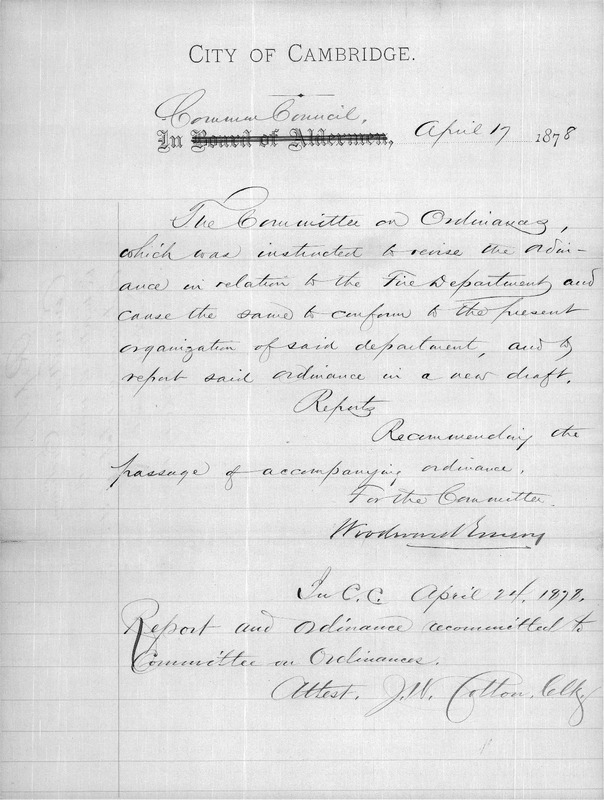 CITY OF CAMBRIDGE.
Common Council,
In Board of Aldermen, April 17 1878
The Committee on Ordinances,
which was instructed to revise the ordin-
ance in relation to the Fire Department and
cause the same to conform to the present
organization of said department, and to
report said ordinance in a new draft.
Reports
Recommending the
passage of accompanying ordinance.
For the Committee
Woodward Emery
In C.C. April 24, 1878.
Report and ordinance recommitted to
Committee on Ordinances.
Attest. J.W. Cotton, Clk